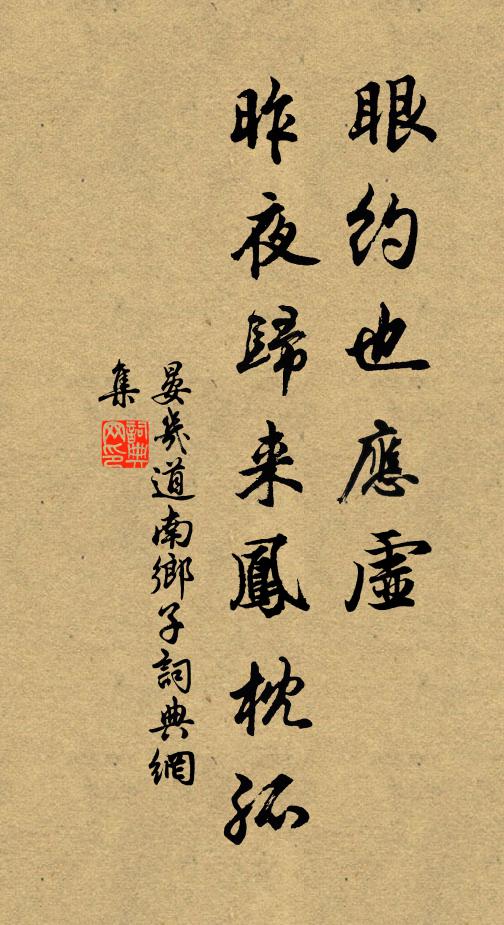 眼約也應虛
昨夜歸来鳳枕孤
晏幾道南鄉子詞典網
集
詞典
网印